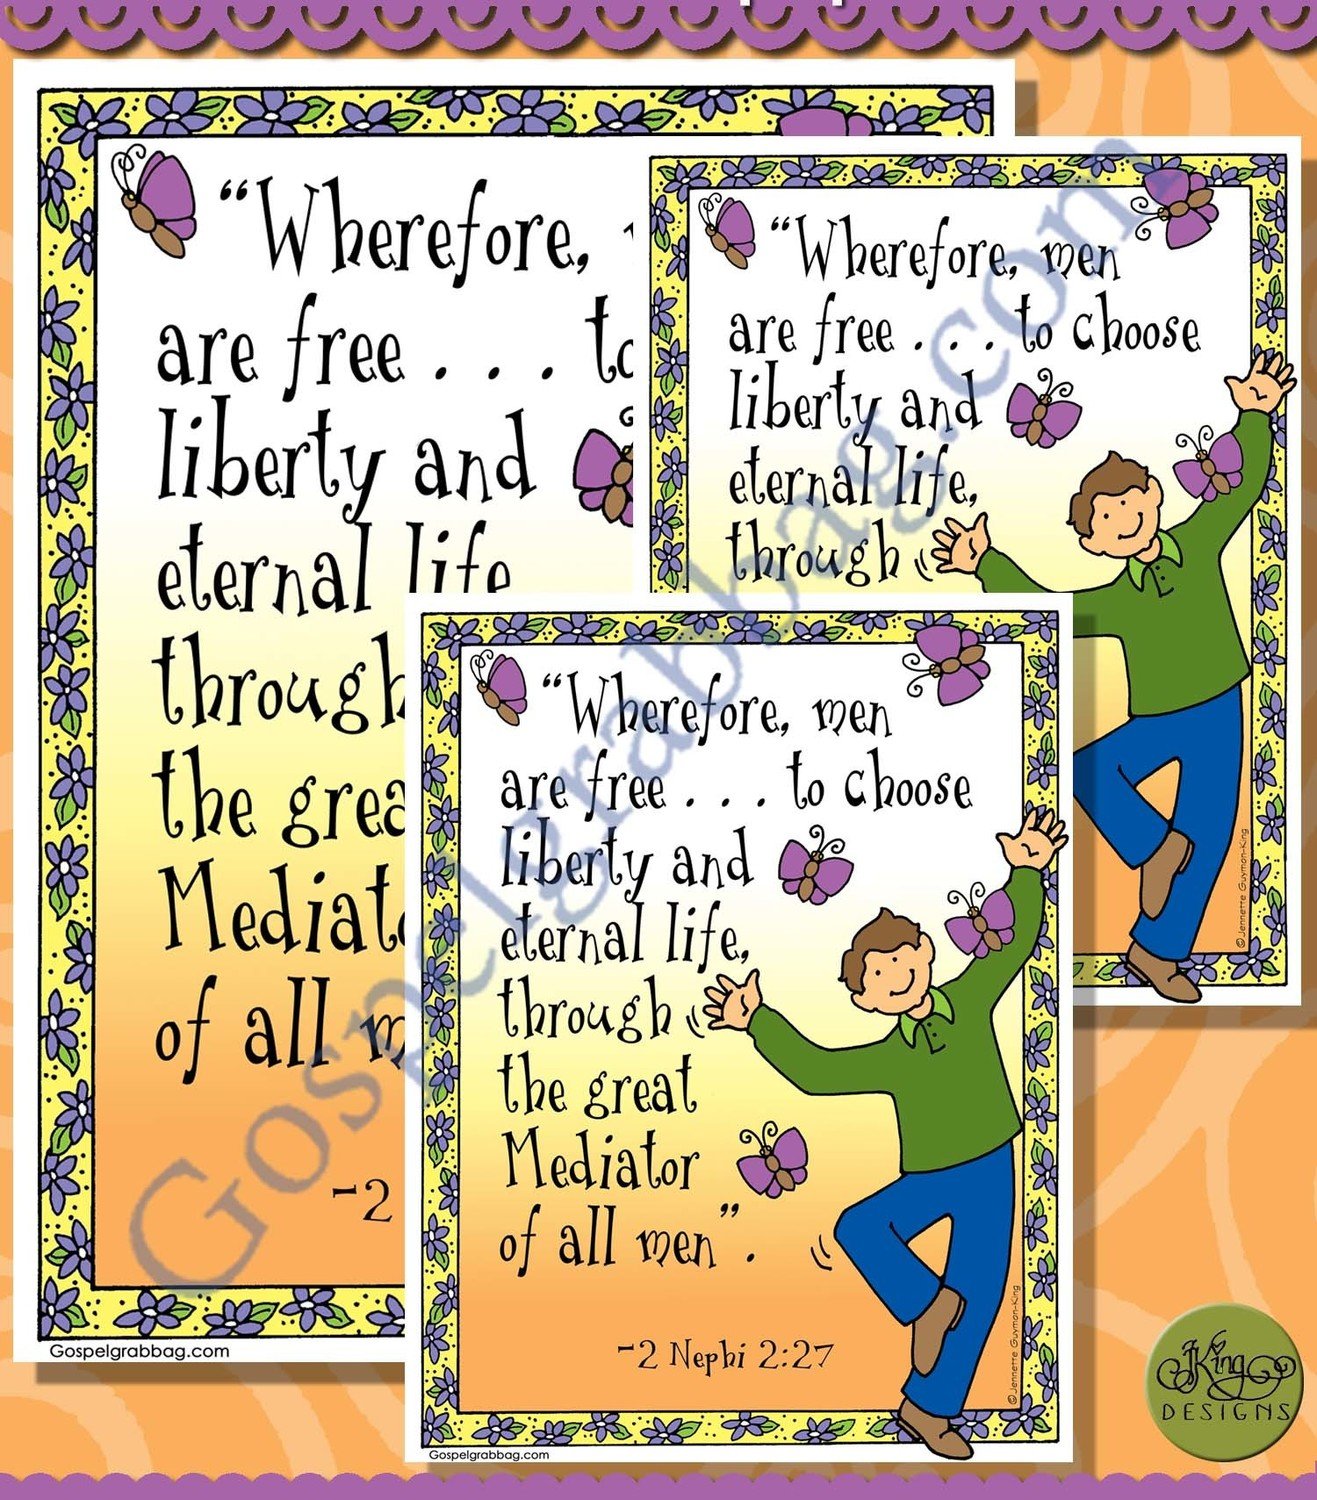 “Wherefore,
are free . . . to
liberty and
eternal life
through
the grea
Mediato
of all m
-2
Gospelgrabbag.com
“Wherefore, men
are free . . . to choose
liberty and
eternal life,
through
© Jennette Guymon-King
“Wherefore, men
are free . . . to choose
liberty and
eternal life,
through
the great
Mediator
of all men”.
-2 Nephi 2:27
© Jennette Guymon-King
Gospelgrabbag.com
Gospelgrabbag.com
JKing
DESIGNS